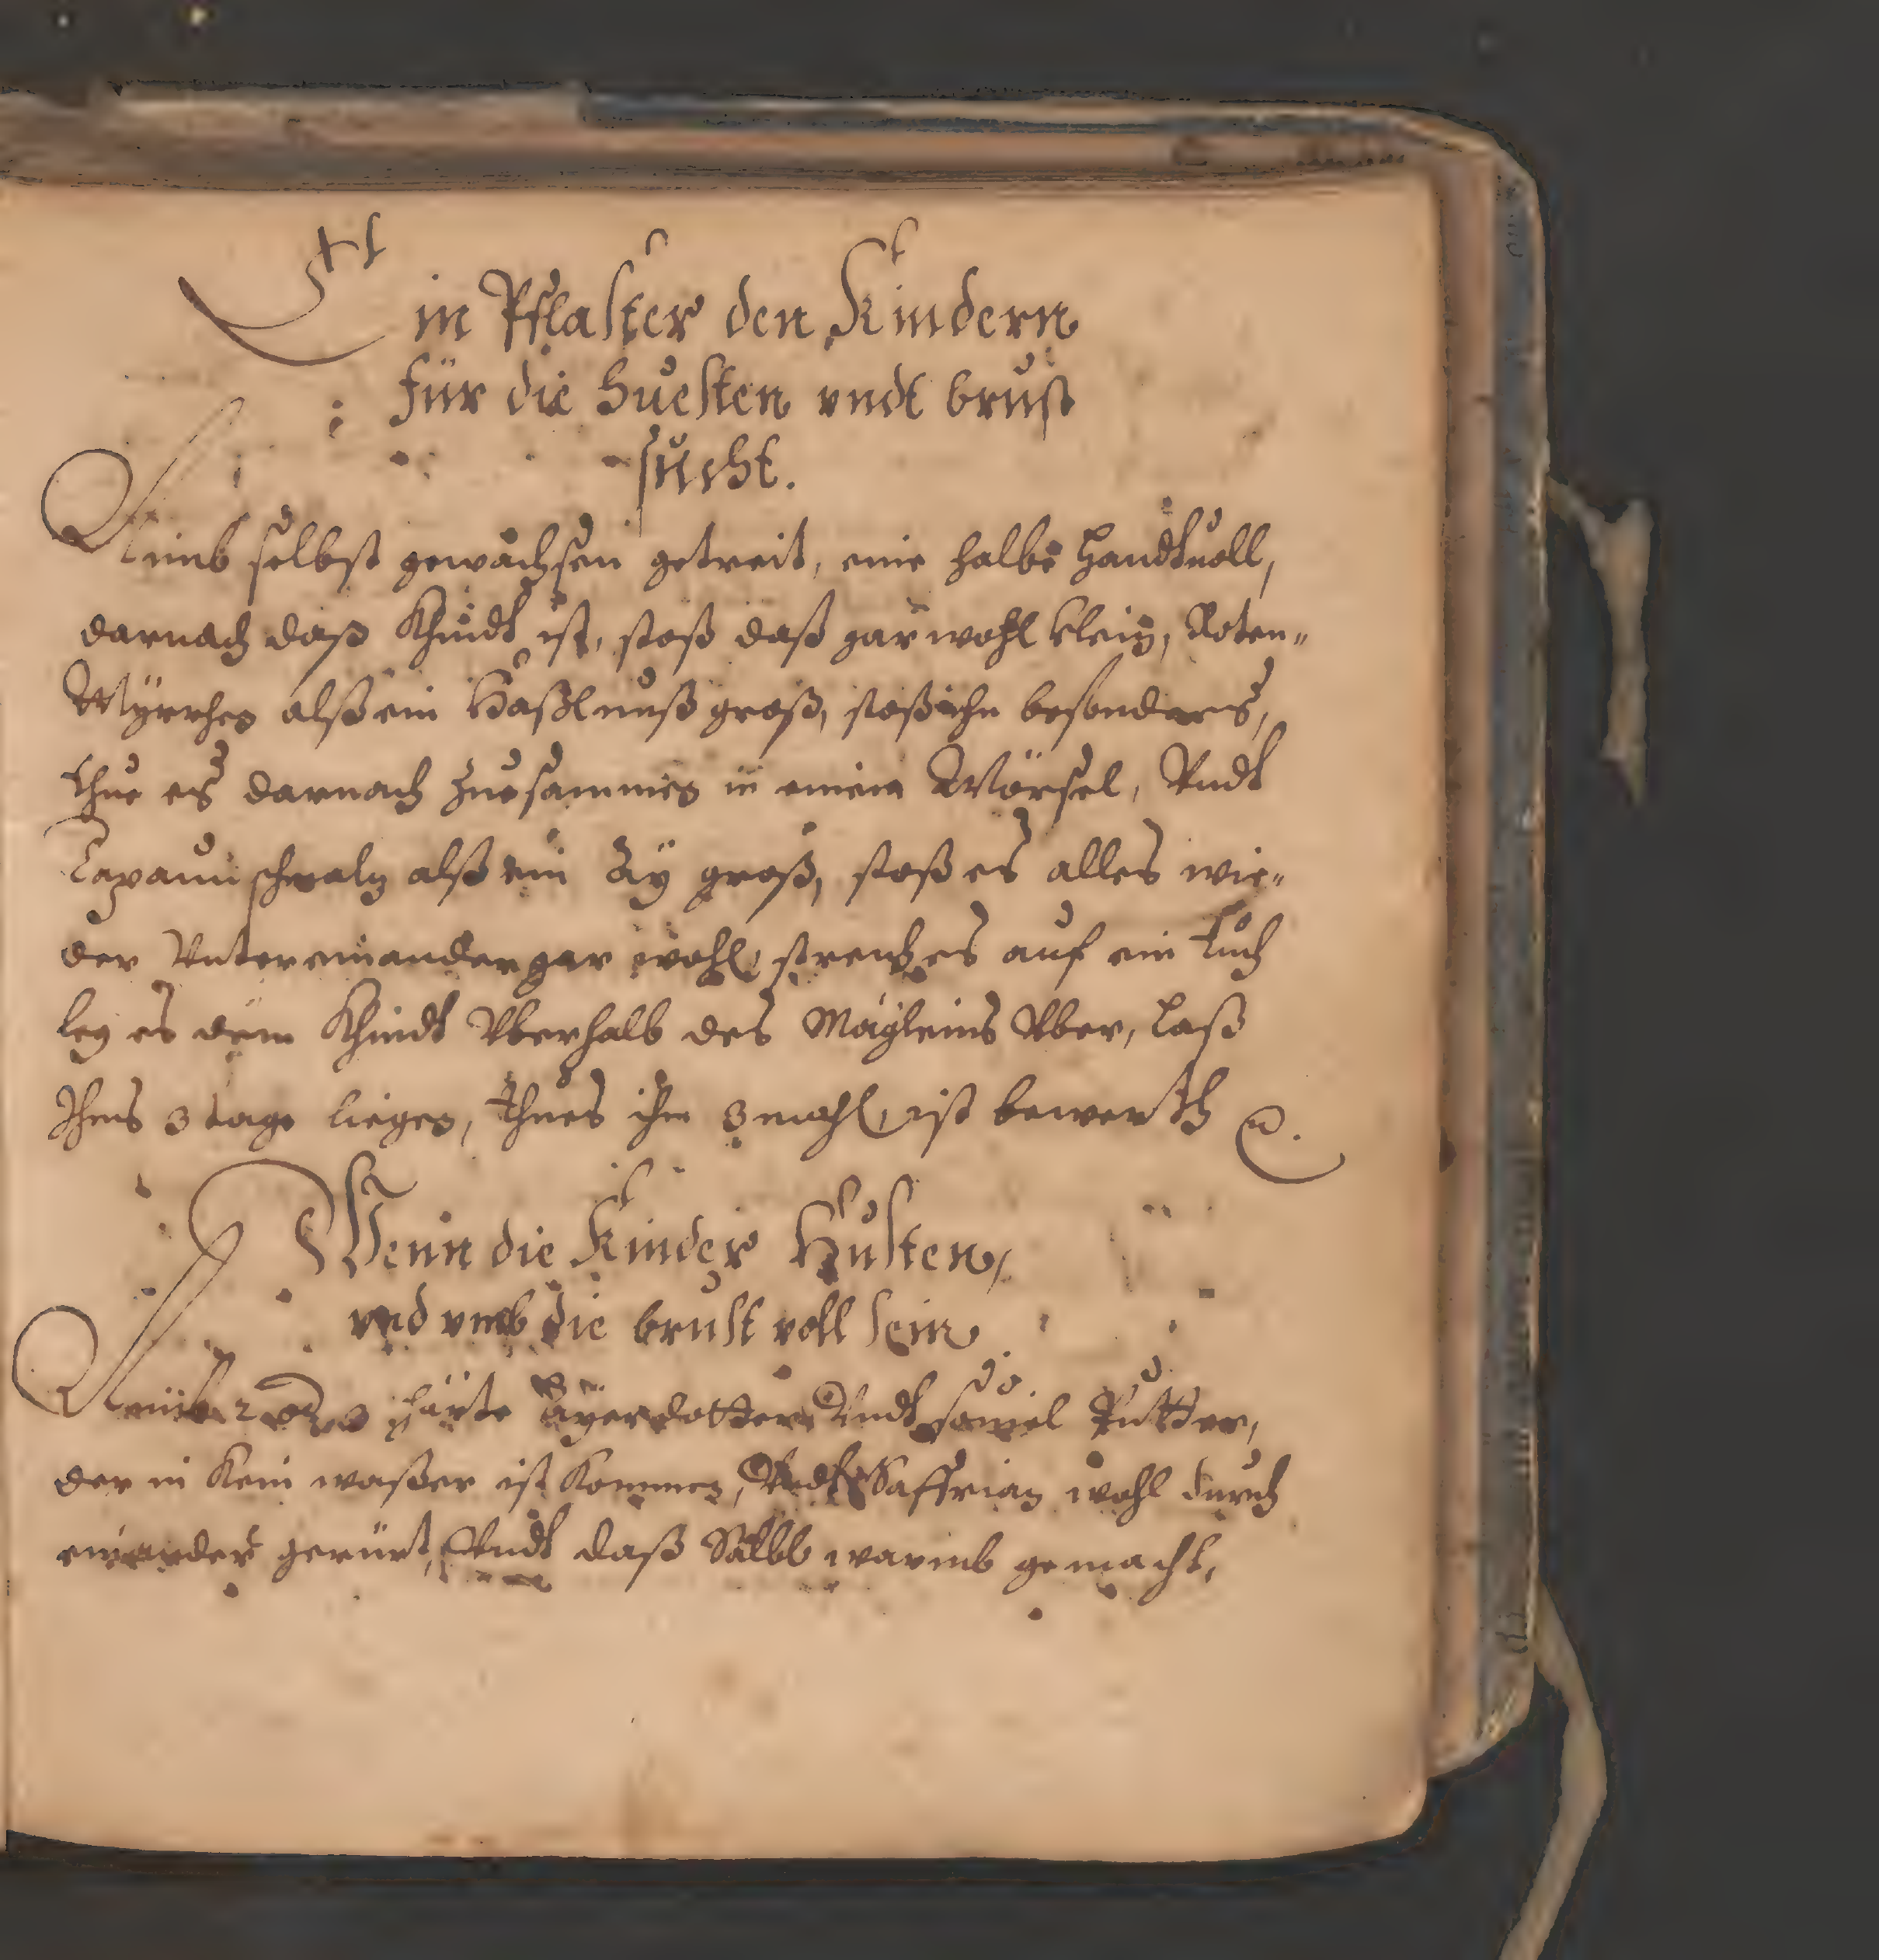 Ein Pflaster den Kindern
für die Huesten vndt brust
sucht.
Nimb selbst gewachsen getreit, eine halbe Handtuoll,
darnach daß Khindt ist, stoß daß gar wohl klein, Roten-
Myrrhen alß ein Haßlnuß groß, stoß ihn besonders,
thue es darnach zuesammen in einem Mörsel, Vndt
Capaun schmaltz alß ein Ay groß, stoß es alles wie-
der Vntereinander gar wohl, streich es auf ein tuch
leg es dem Khindt Vberhalb des Mägleins Vber, laß
Ihms 3 tage liegen, thues ihm 3 mahl, ist bewerth
Wenn die Kinder Husten,
vnd vmb die brust voll sein
Nimb 2 oder 3 härte Äyerdotter Vndt souiel Putter,
der in kein waßer ist kommen, Vndt Saffrian wohl durch
einander gerürt, Vndt daß Sälbl warmb gemacht,